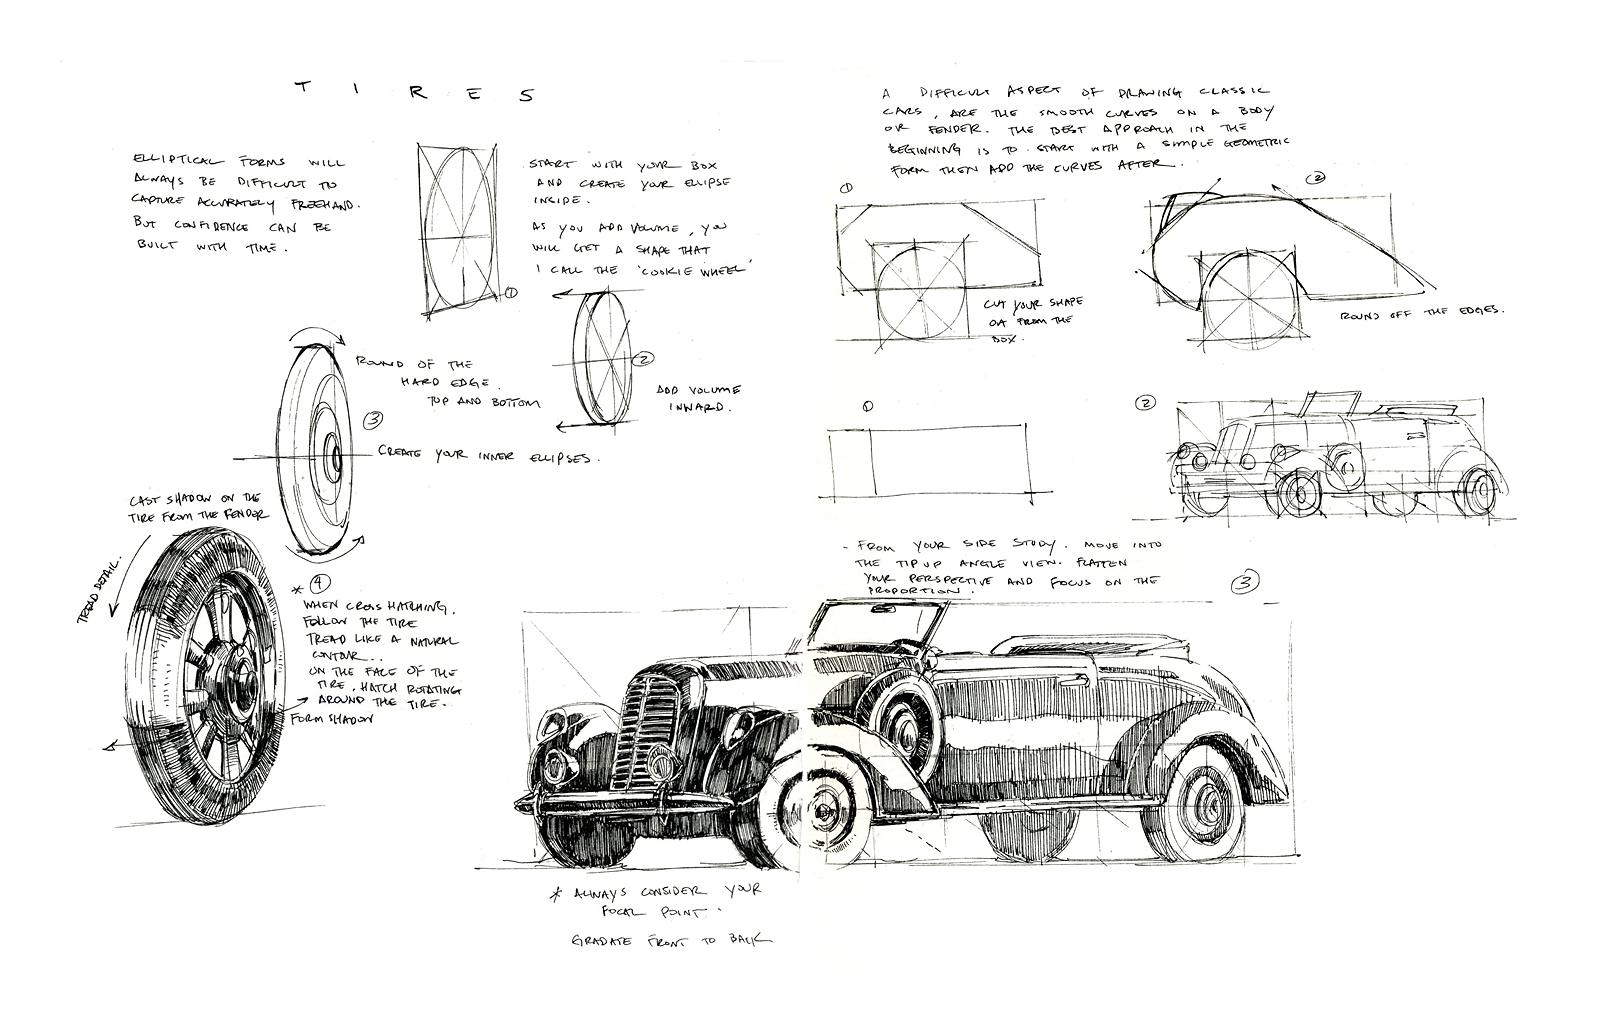 TIRES
ELLIPTICAL FORMS WILL
ALWAYS BE DIFFICULT TO
CAPTURE ACCURATELY FREEHAND.
BUT CONFIDENCE CAN BE
BUILT WITH TIME.
START WITH YOUR BOX
AND CREATE YOUR ELLIPSE
INSIDE.
AS YOU ADD VOLUME, YOU
WILL GET A SHAPE THAT
I CALL THE 'COOKIE WHEEL'
1
2
ADD VOLUME
INWARD.
ROUND OF THE
HARD EDGE.
TOP AND BOTTOM
3
CREATE YOUR INNER ELLIPSES.
CAST SHADOW ON THE
TIRE FROM THE FENDER
TREAD DETAIL.
* 4
WHEN CROSS HATCHING,
FOLLOW THE TIRE
TREAD LIKE A NATURAL
CONTOUR..
ON THE FACE OF THE
TIRE, HATCH ROTATING
AROUND THE TIRE.
FORM SHADOW
A DIFFICULT ASPECT OF DRAWING CLASSIC
CARS, ARE THE SMOOTH CURVES ON A BODY
OR FENDER. THE BEST APPROACH IN THE
BEGINNING IS TO START WITH A SIMPLE GEOMETRIC
FORM THEN ADD THE CURVES AFTER.
1
CUT YOUR SHAPE
OUT FROM THE
BOX.
2
ROUND OFF THE EDGES.
1
2
- FROM YOUR SIDE STUDY. MOVE INTO
THE TIP UP ANGLE VIEW. FLATTEN
YOUR PERSPECTIVE AND FOCUS ON THE
PROPORTION.
3
* ALWAYS CONSIDER YOUR
FOCAL POINT.
GRADATE FRONT TO BACK